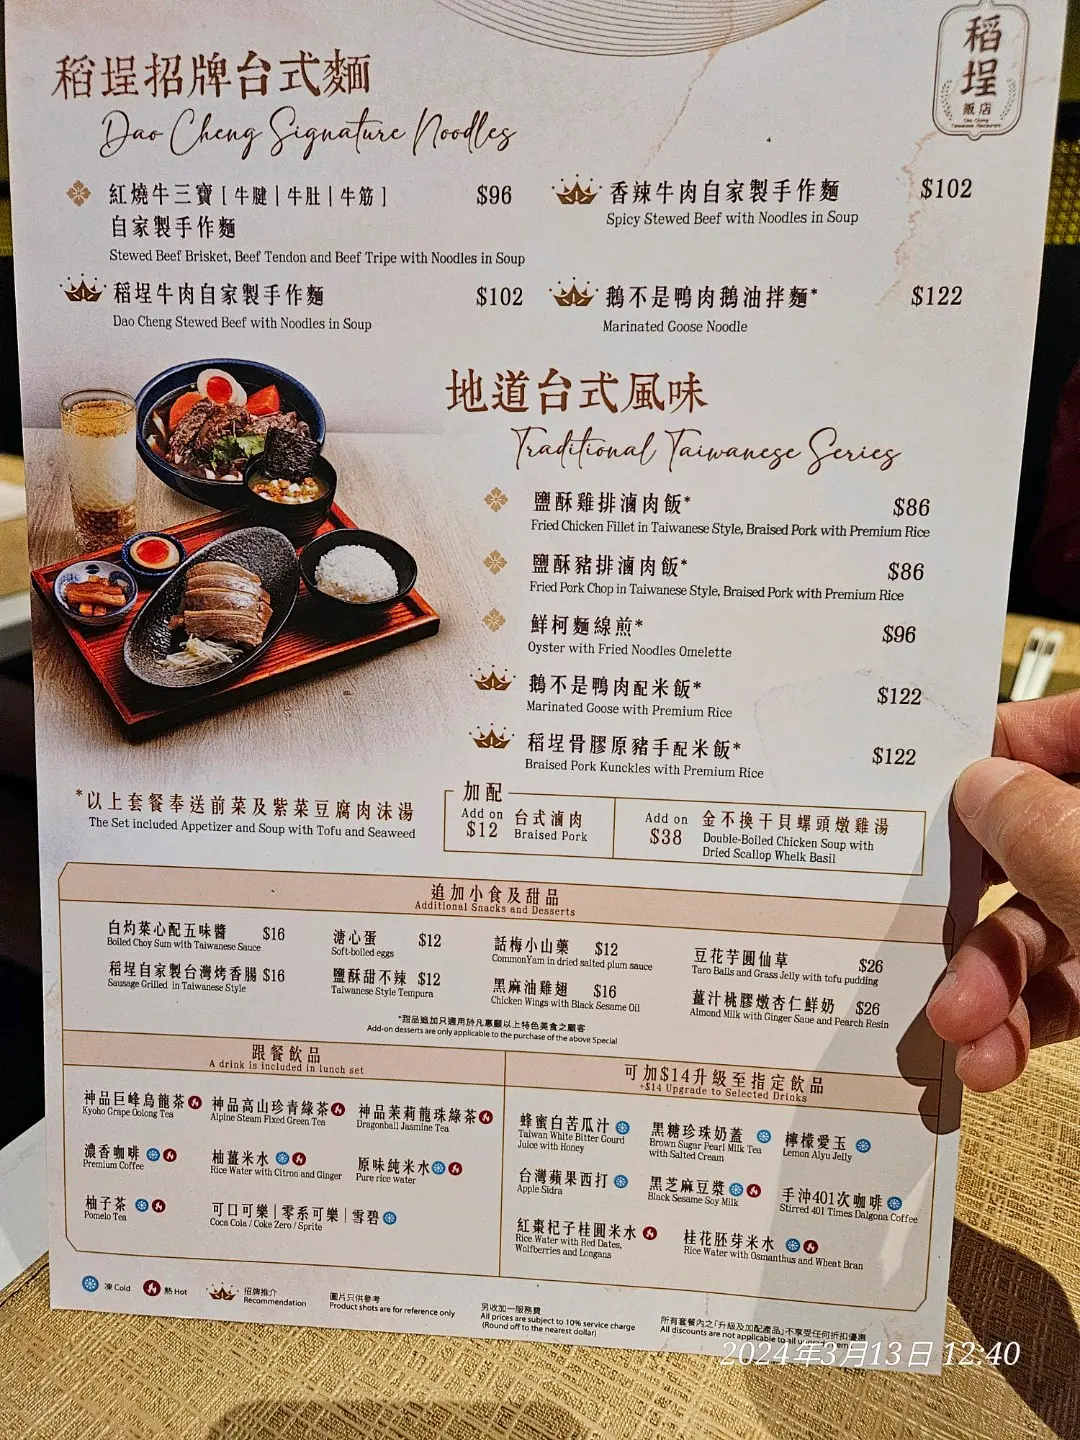 稻埕
飯店
Dao Cheng
Taiwanese Restaurant
稻埕招牌台式麵
Dao Cheng Signature Noodles
紅燒牛三寶 [ 牛腱 | 牛肚 | 牛筋 ] $96
自家製手作麵
Stewed Beef Brisket, Beef Tendon and Beef Tripe with Noodles in Soup
香辣牛肉自家製手作麵 $102
Spicy Stewed Beef with Noodles in Soup
稻埕牛肉自家製手作麵 $102
Dao Cheng Stewed Beef with Noodles in Soup
鵝不是鴨肉鵝油拌麵* $122
Marinated Goose Noodle
地道台式風味
Traditional Taiwanese Series
鹽酥雞排滷肉飯* $86
Fried Chicken Fillet in Taiwanese Style, Braised Pork with Premium Rice
鹽酥豬排滷肉飯* $86
Fried Pork Chop in Taiwanese Style, Braised Pork with Premium Rice
鮮柯麵線煎* $96
Oyster with Fried Noodles Omelette
鵝不是鴨肉配米飯* $122
Marinated Goose with Premium Rice
稻埕骨膠原豬手配米飯* $122
Braised Pork Kunckles with Premium Rice
*以上套餐奉送前菜及紫菜豆腐肉沫湯
The Set included Appetizer and Soup with Tofu and Seaweed
加配
Add on $12 台式滷肉
Braised Pork
Add on $38 金不換干貝螺頭燉雞湯
Double-Boiled Chicken Soup with
Dried Scallop Whelk Basil
追加小食及甜品
Additional Snacks and Desserts
白灼菜心配五味醬 $16
Boiled Choy Sum with Taiwanese Sauce
溏心蛋 $12
Soft-boiled eggs
話梅小山藥 $12
CommonYam in dried salted plum sauce
豆花芋圓仙草 $26
Taro Balls and Grass Jelly with tofu pudding
稻埕自家製台灣烤香腸 $16
Sausage Grilled in Taiwanese Style
鹽酥甜不辣 $12
Taiwanese Style Tempura
黑麻油雞翅 $16
Chicken Wings with Black Sesame Oil
薑汁桃膠燉杏仁鮮奶 $26
Almond Milk with Ginger Saue and Pearch Resin
*甜品追加只適用於凡惠顧以上特色美食之顧客
Add-on desserts are only applicable to the purchase of the above Special
跟餐飲品
A drink is included in lunch set
神品巨峰烏龍茶
Kyoho Grape Oolong Tea
神品高山珍青綠茶
Alpine Steam Fixed Green Tea
神品茉莉龍珠綠茶
Dragonball Jasmine Tea
濃香咖啡
Premium Coffee
柚薑米水
Rice Water with Citron and Ginger
原味純米水
Pure rice water
柚子茶
Pomelo Tea
可口可樂 | 零系可樂 | 雪碧
Coca Cola / Coke Zero / Sprite
可加$14升級至指定飲品
+$14 Upgrade to Selected Drinks
蜂蜜白苦瓜汁
Taiwan White Bitter Gourd
Juice with Honey
黑糖珍珠奶蓋
Brown Sugar Pearl Milk Tea
with Salted Cream
檸檬愛玉
Lemon Aiyu Jelly
台灣蘋果西打
Apple Sidra
黑芝麻豆漿
Black Sesame Soy Milk
手沖401次咖啡
Stirred 401 Times Dalgona Coffee
紅棗杞子桂圓米水
Rice Water with Red Dates,
Wolfberries and Longans
桂花胚芽米水
Rice Water with Osmanthus and Wheat Bran
凍 Cold
熱 Hot
招牌推介
Recommendation
圖片只供參考
Product shots are for reference only
另收加一服務費
All prices are subject to 10% service charge
(Round off to the nearest dollar)
所有套餐內之「升級及加配產品」不享受任何折扣優惠
All discounts are not applicable to all
2024年3月13日 12:40